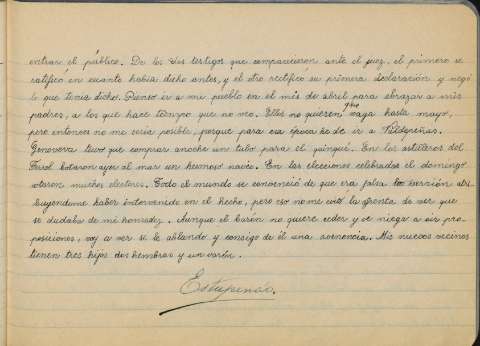 entrar el público. De los dos testigos que comparecieron ante el juez, el primero se
ratificó en cuanto había dicho antes, y el otro rectificó su primera declaración y negó
lo que tenía dicho. Pienso ir a mi pueblo en el mes de abril para abrazar a mis
padres, a los que hace tiempo que no veo. Ellos no quieren que vaya hasta mayo,
pero entonces no me sería posible, porque para esa época he de ir a Valdepeñas.
Genoveva tuvo que comprar anoche un tubo para el quinqué. En los astilleros del
Ferrol botaron ayer al mar un hermoso navío. En las elecciones celebradas el domingo
votaron muchos electores. Todo el mundo se convenció de que era falsa la versión atri
buyéndome haber intervenido en el hecho, pero eso no me evitó la afrenta de ver que
se dudaba de mi honradez. Aunque el barón no quiere ceder y se niega a oir pro-
posiciones, voy a ver si le ablando y consigo de él una avenencia. Mis nuevos vecinos
tienen tres hijos dos hembras y un varón.
Estupendo.